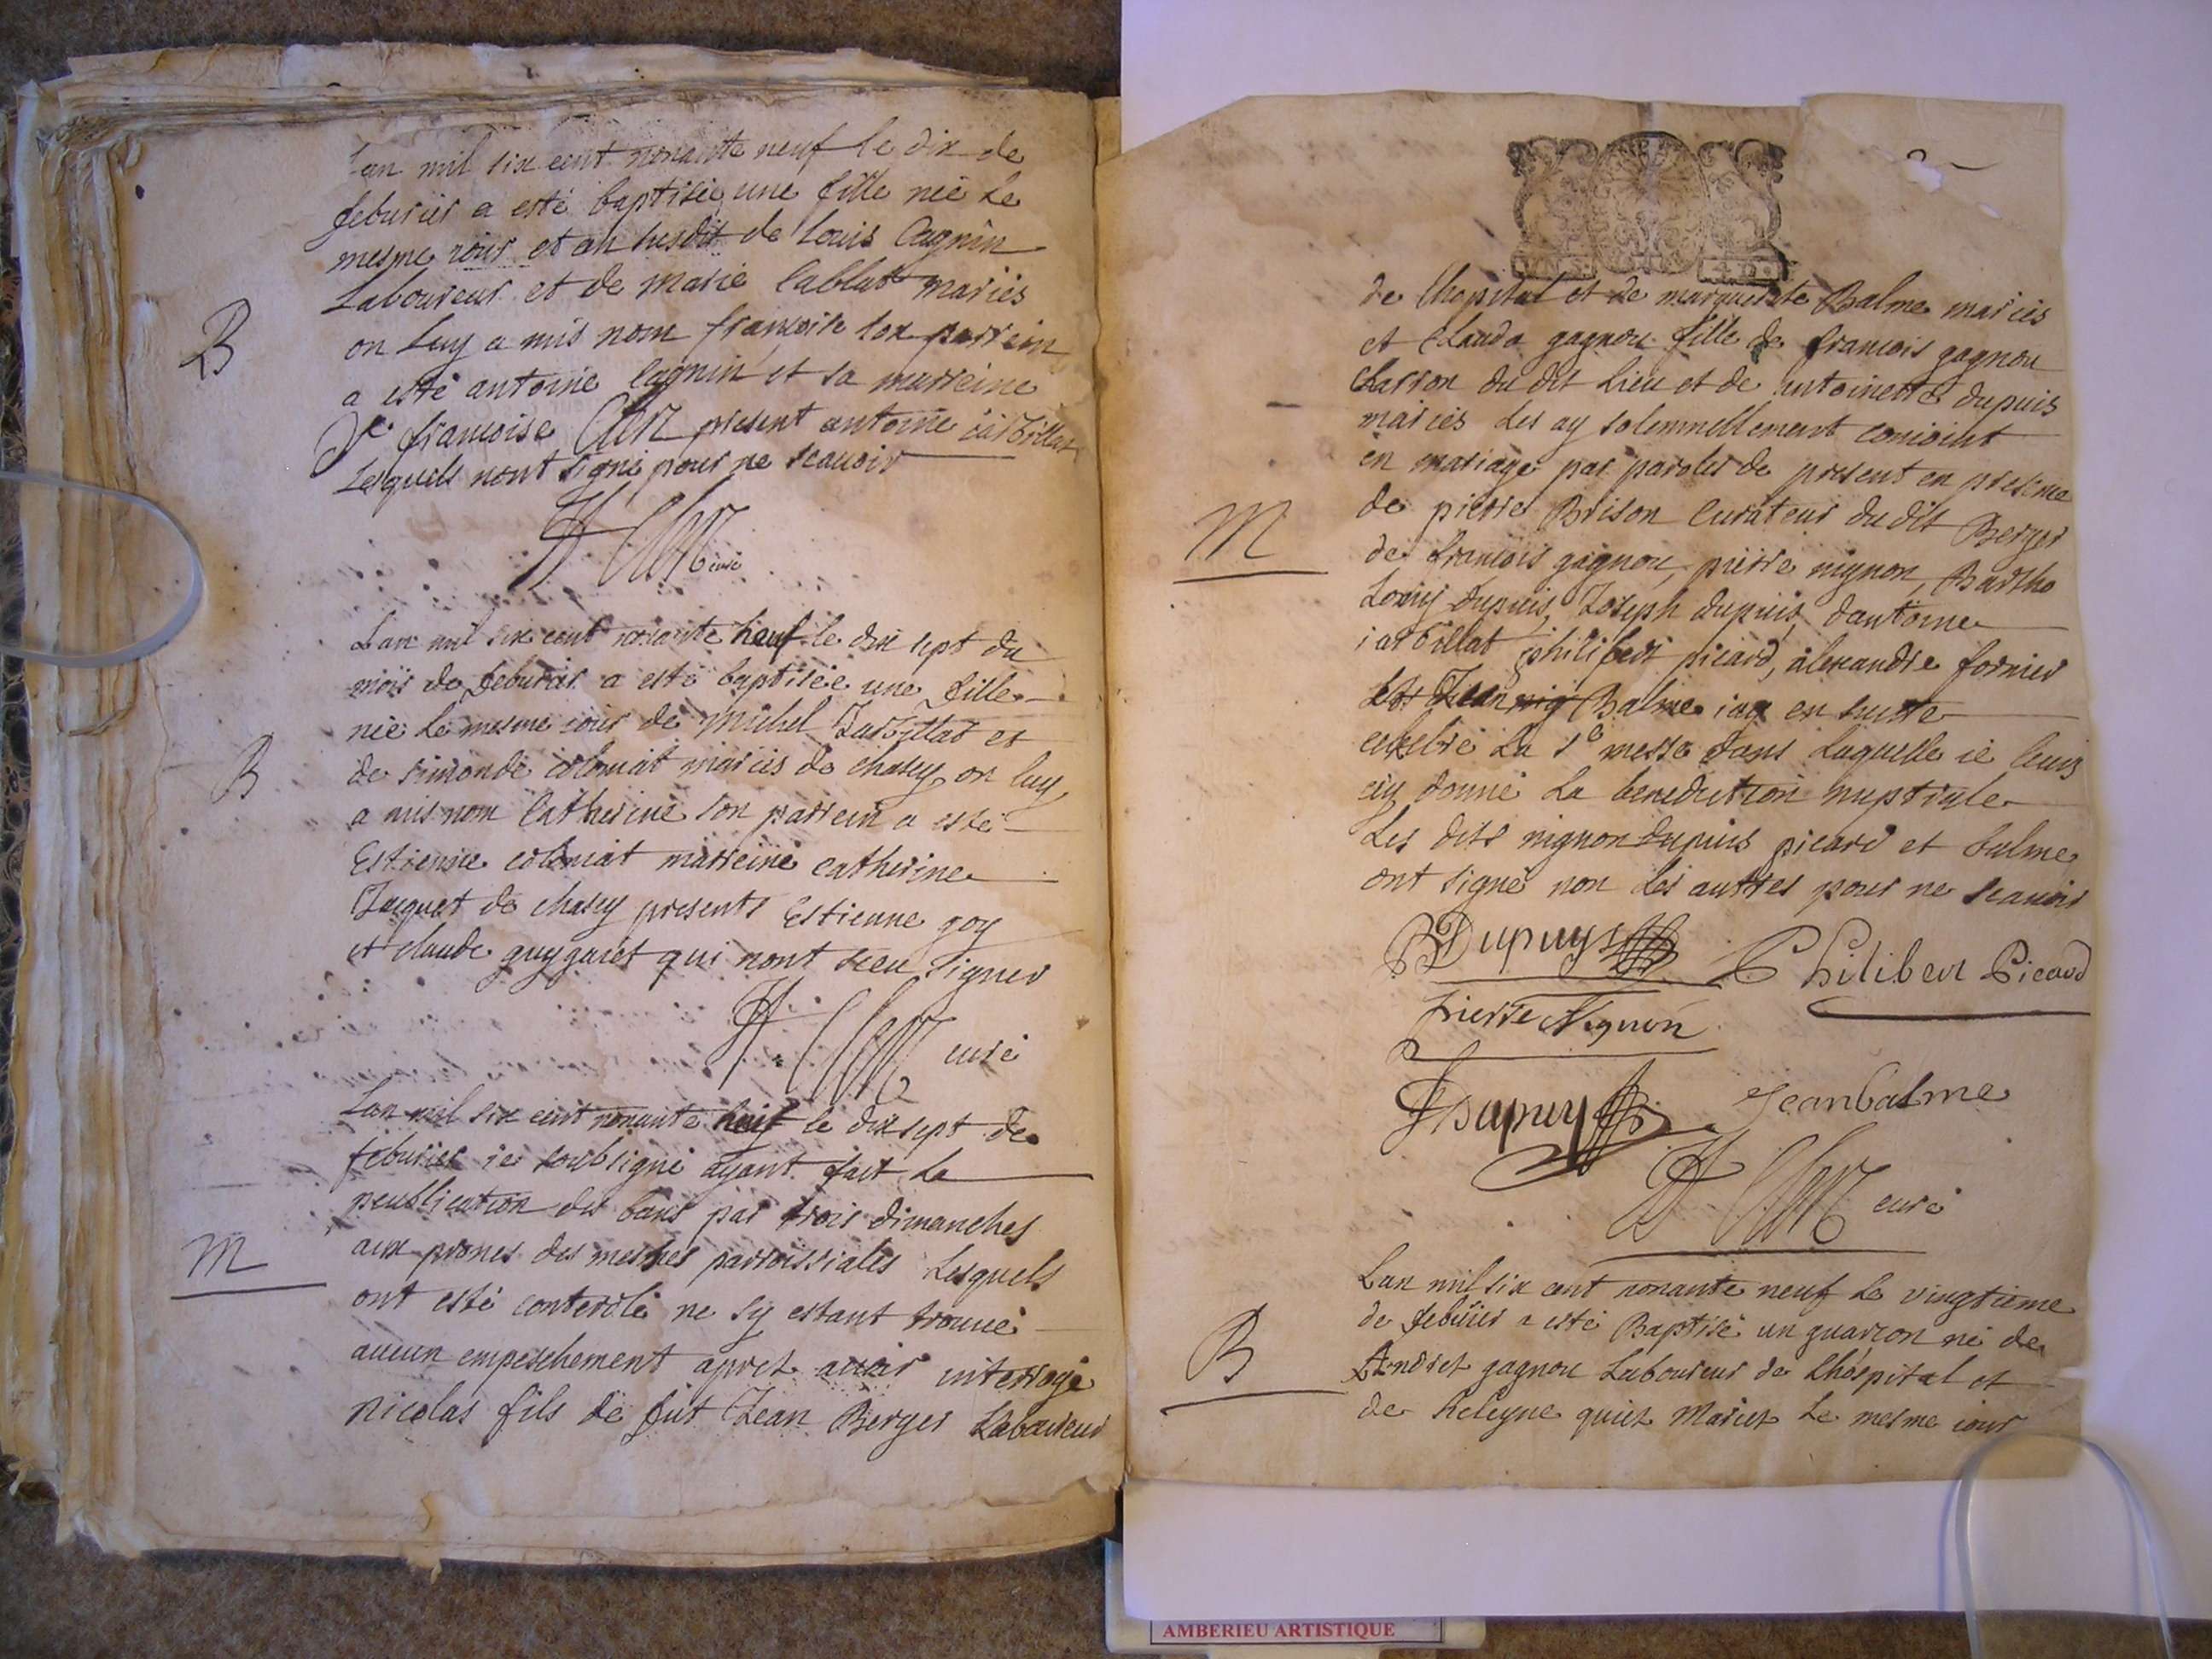 Lan mil six cent nonante neuf le dix de
feburier a esté baptisée une fille née le
mesme iour et an susdit de Louis Cagnin
Laboureur et de marie Cablat mariés
B
on Luy a mis nom francoise son parrein
a esté antoine Cagnin et sa marreine
francoise Clerz present antoine iarbillat
Lesquels nont signé pour ne scauoir
curé
Lan mil six cent nonante neuf le dix sept du
mois de feburier a esté baptisée une fille
née le mesme iour de Michel Jarbillat et
B
de simonde colomat mariés de chasey on luy
a mis nom Catherine son parrein a esté
Estienne colomat marreine catherine
Jacquet de chasey presents Estienne goy
et claude guygaret qui nont sceu signer
curé
Lan mil six cent nonante neuf le dix sept de
feburier ie soubsigné ayant fait la
peublication des bans par trois dimanches
M
aux prones des messes parroissiales Lesquels
ont esté conterolé ne sy estant trouué
aucun empeschement apret auoir interrogé
nicolas fils de fut Jean Berger Laboureur
de Lhopital et de marguerite Balme mariés
et Clauda gagnou fille de francois gagnou
charron du dit Lieu et de antoinette dupuis
mariés Les ay solemnellement conioint
en mariage par paroles de present en presence
M
de pierre Brison Curateur du dit Berger
de francois gagnou, pierre nignon, Bartho
Lomy dupuis, Joseph dupuis, dantoine
iarbillat philibert picard, alexandre fornier
et Jean nig Balme iay en suitte
celebré La Ste messe dans Laquelle ie leurs
ay donné La benediction nuptiale
Les dits nignon dupuis picard et balme
ont signé non les autres pour ne scauoir
BDupuys Philiber Picard
Pierre Nignon
JDupuy Jeanbalme
curé
Lan mil six cent nonante neuf le vingtieme
de feburier a esté Baptisé un guarcon né de
B
Andret gagnou Laboureur de Lhospital et
de heleyne quiet Mariet le mesme iour
AMBERIEU ARTISTIQUE